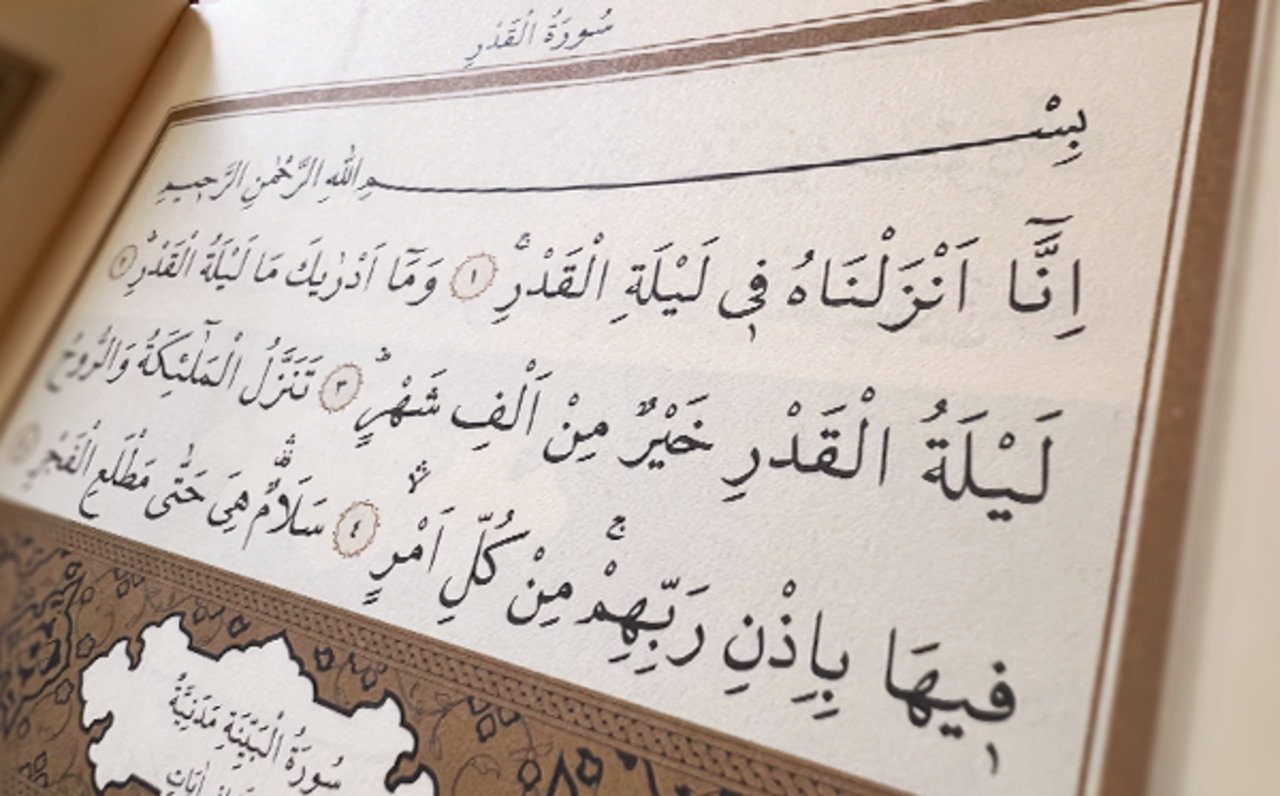 سُورَةُ الْقَدْرِ
بِسْمِ اللّٰهِ الرَّحْمٰنِ الرَّحٖيمِ
اِنَّٓا اَنْزَلْنَاهُ فٖى لَيْلَةِ الْقَدْرِۚ ١ وَمَٓا اَدْرٰيكَ مَا لَيْلَةُ الْقَدْرِؕ ٢
لَيْلَةُ الْقَدْرِ خَيْرٌ مِنْ اَلْفِ شَهْرٍؕ ٣ تَنَزَّلُ الْمَلٰٓئِكَةُ وَالرُّوحُ
فٖيهَا بِاِذْنِ رَبِّهِمْۚ مِنْ كُلِّ اَمْرٍۛ ٤ سَلَامٌۛ هِىَ حَتّٰى مَطْلَعِ الْفَجْرِ
سُورَةُ الْبَيِّنَةِ مَدَنِيَّةٌ
اٰيَاتٍ